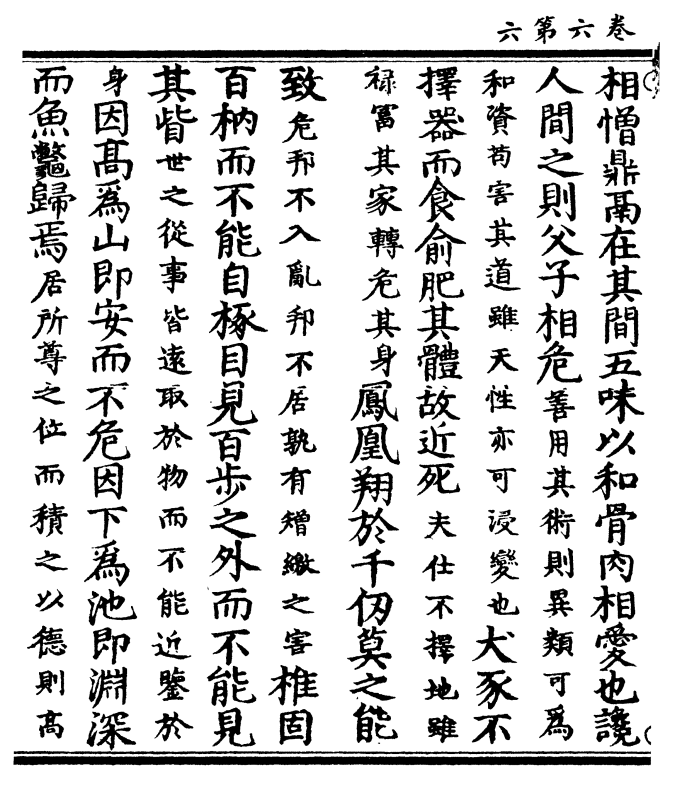 卷六第六
相憎鼎鬲在其間五味以和骨肉相愛也讒
人間之則父子相危善用其術則異類可爲
和資苟害其道雖天性亦可浸變也犬豕不
擇器而食俞肥其體故近死夫仕不擇地雖
禄富其家轉危其身鳳凰翔於千仞莫之能
致危邦不入亂邦不居孰有矰繳之害椎固
百枘而不能自椓目見百步之外而不能見
其眥世之從事皆遠取於物而不能近鑒於
身因高爲山即安而不危因下爲池即淵深
而魚鼈歸焉居所尊之位而積之以德則高